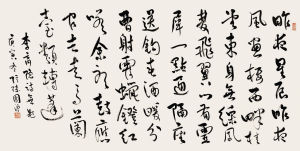 昨夜星辰昨夜
風畫樓西畔桂
堂東身無綵鳳
雙飛翼心有靈
犀一點通隔座
送鈎春酒暖分
曹射覆蠟燈紅
嗟余聽鼓應
官去走馬蘭
臺類轉蓬
李商隱詩無題
庚寅